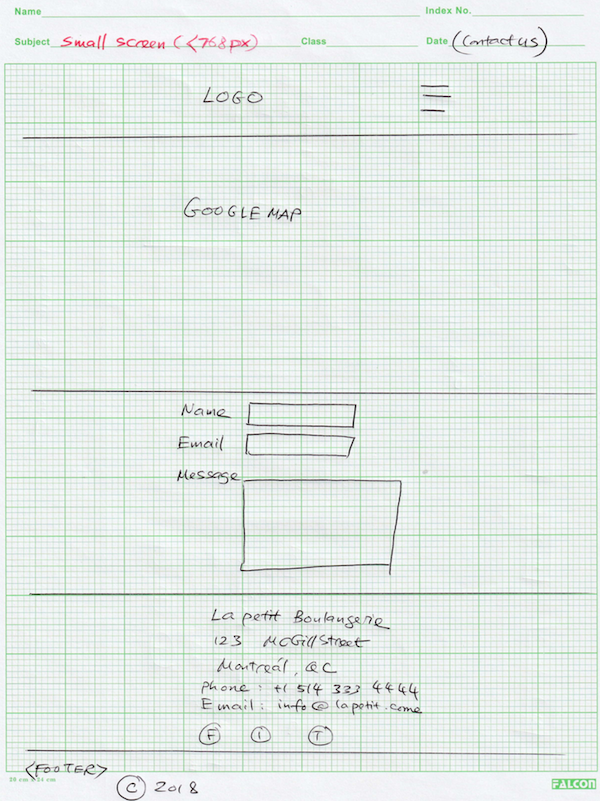 Name Index No.
Subject Small screen (<768px) Class Date (Contact us)
LOGO
GOOGLE MAP
Name
Email
Message
La petit Boulangerie
123 McGill Street
Montreál, QC
phone: +1 514 333 4444
Email: info@lapetit.come
F I T
<FOOTER>
28 cm x 24 cm FALCON
© 2018